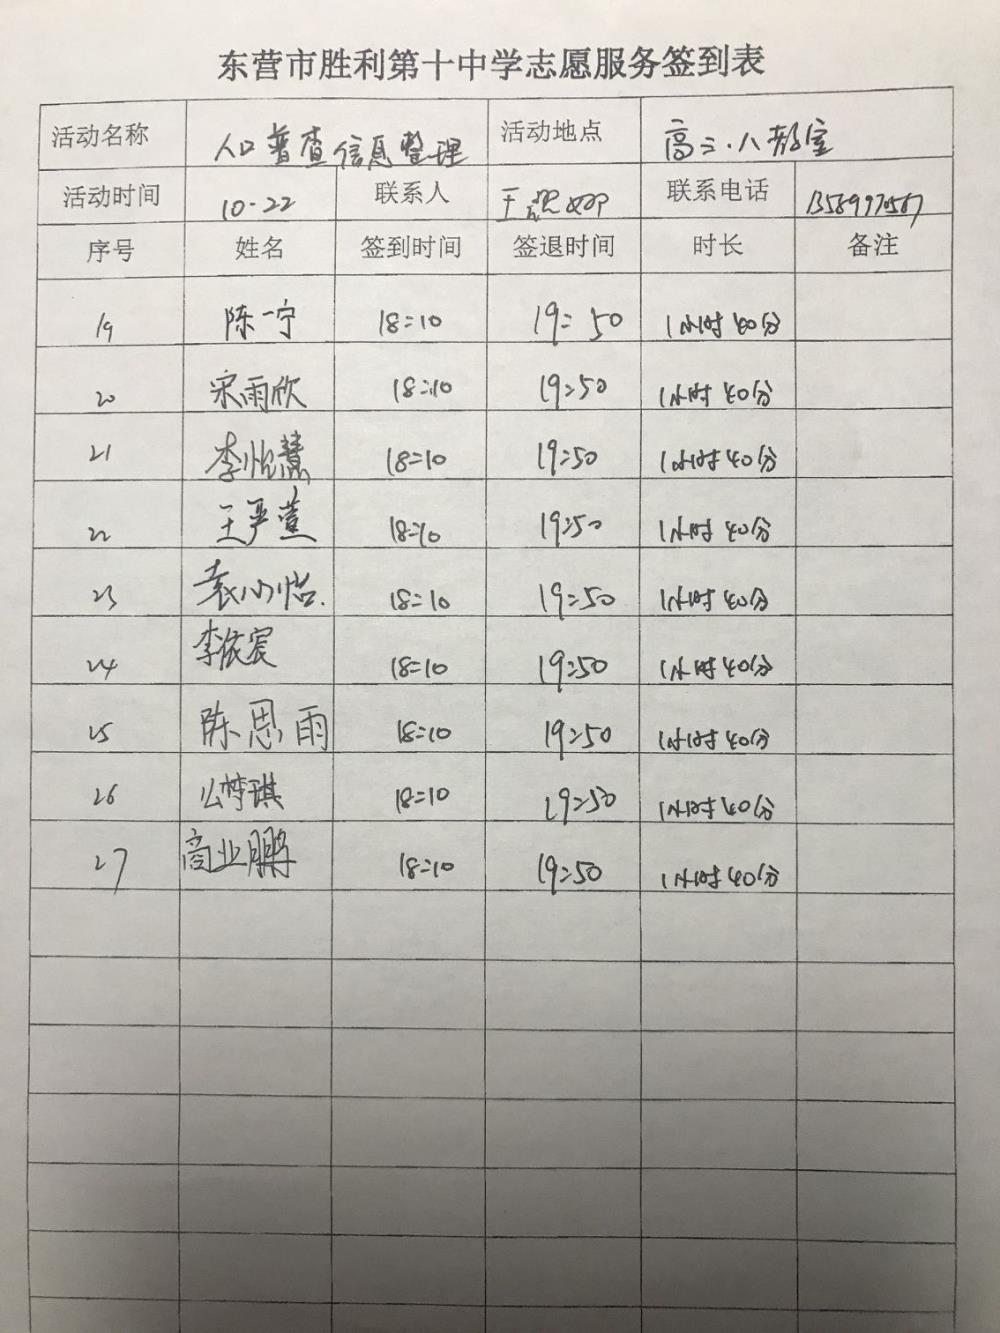 东营市胜利第十中学志愿服务签到表
活动名称 人口普查信息整理 活动地点 高三.八教室
活动时间 10-22 联系人 王 联系电话
序号 姓名 签到时间 签退时间 时长 备注
19 陈一宁 18:10 19:50 1小时40分
20 宋雨欣 18:10 19:50 1小时40分
21 李怡慧 18:10 19:50 1小时40分
22 王严萱 18:10 19:50 1小时40分
23 袁心怡. 18:10 19:50 1小时40分
24 李依宸 18:10 19:50 1小时40分
25 陈思雨 18:10 19:50 1小时40分
26 公梦琪 18:10 19:50 1小时40分
27 商业鹏 18:10 19:50 1小时40分